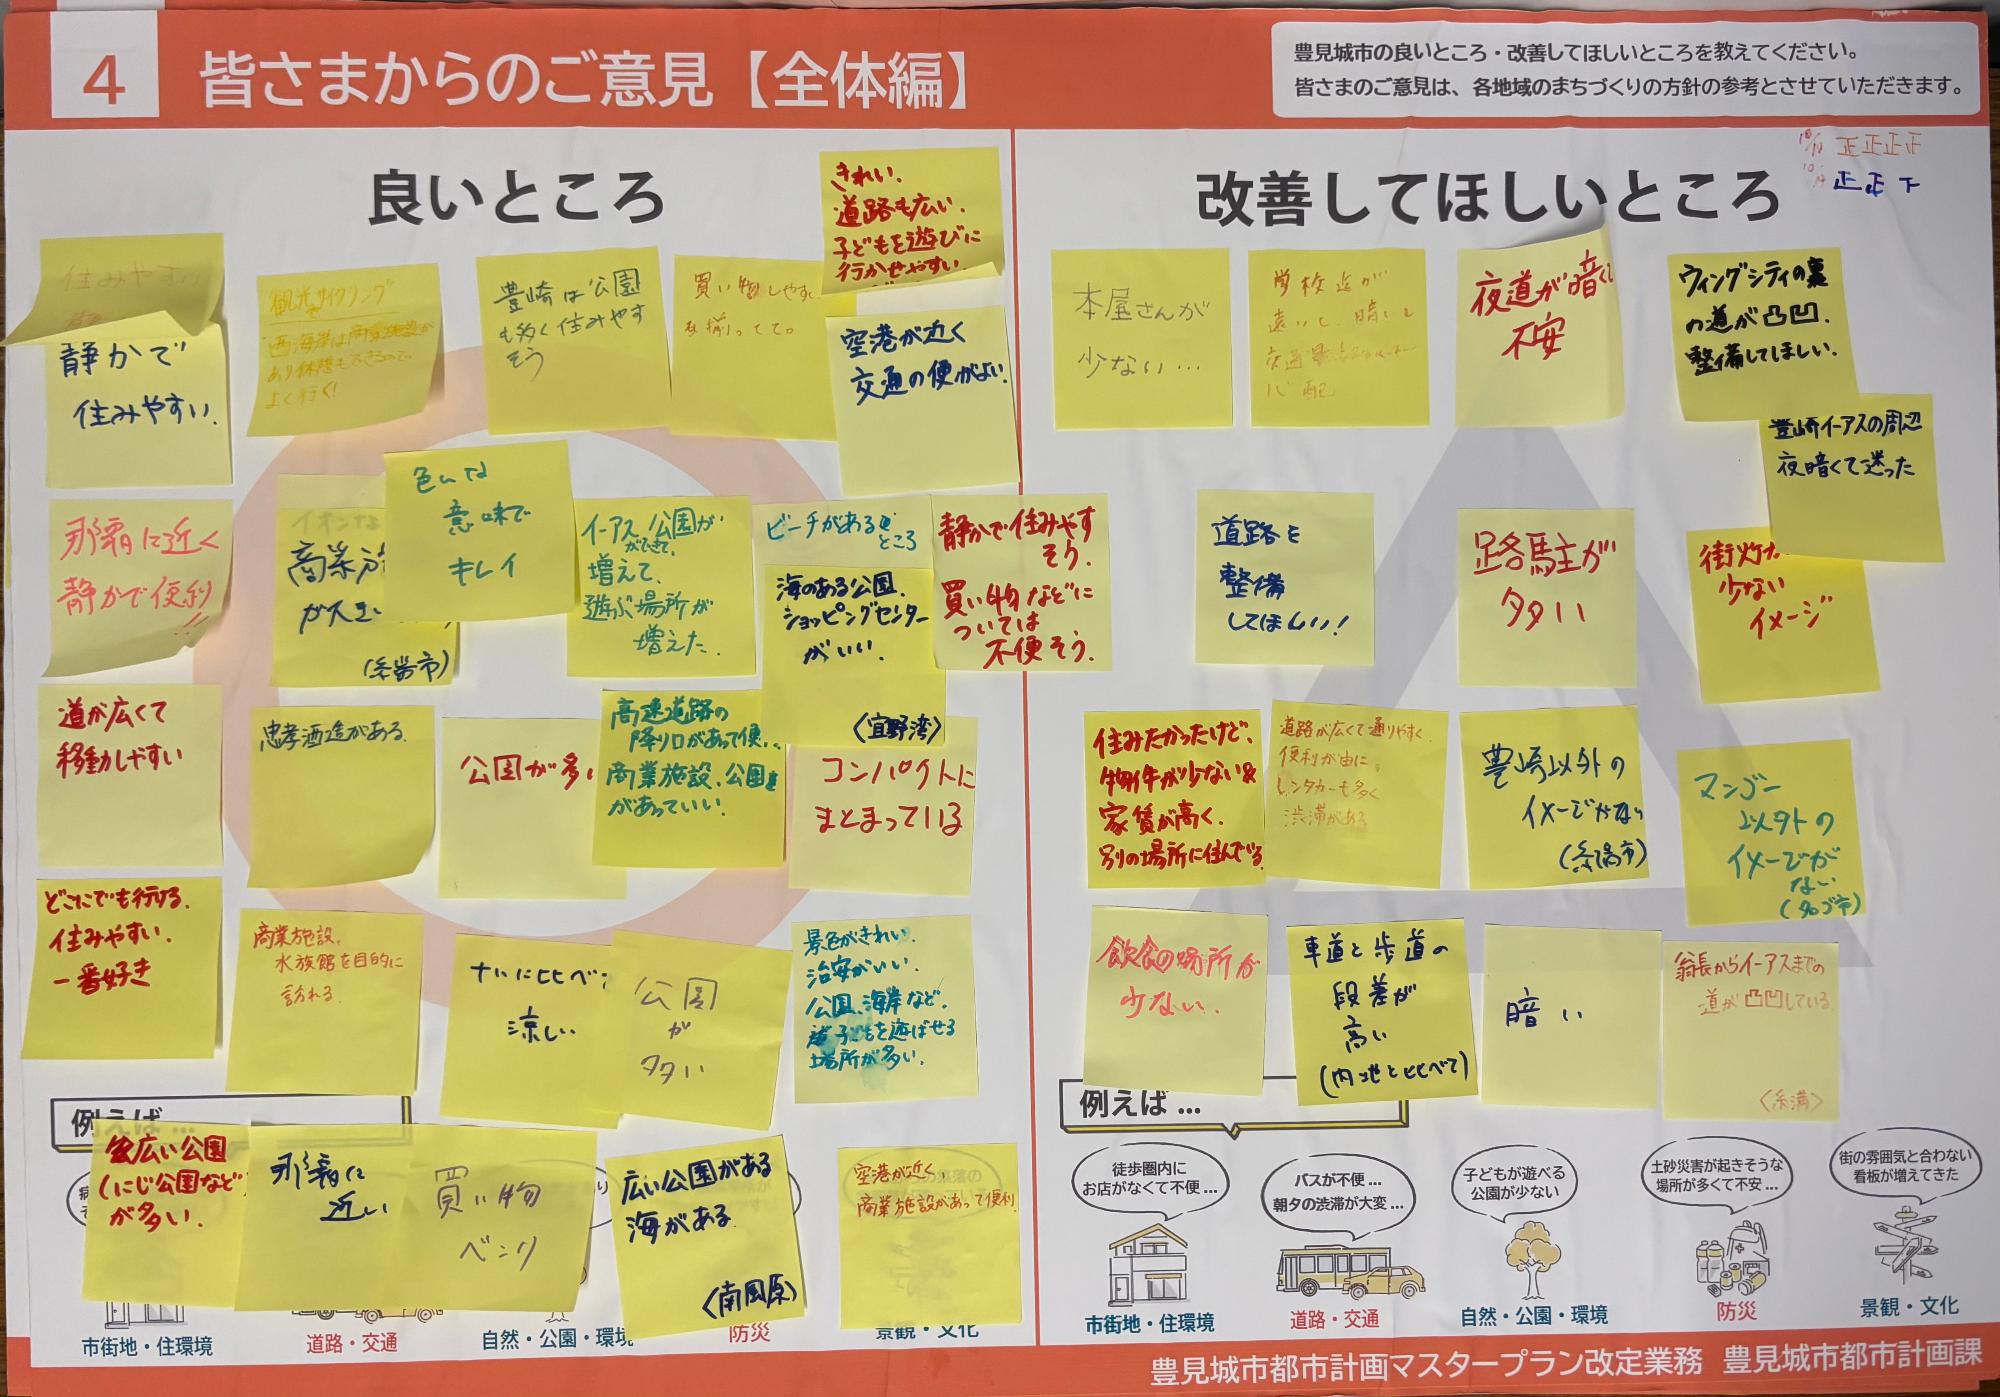 4
皆さまからのご意見【全体編】
豊見城市の良いところ・改善してほしいところを教えてください。
皆さまのご意見は、各地域のまちづくりの方針の参考とさせていただきます。
良いところ
きれい.
道路も広い.
子どもを遊びに
行かせやすい.
住みやすい
静かで
住みやすい.
観光サイクリング
西海岸は商業施設が
あり休憩もできるので
よく行く!
豊崎は公園
も多く住みやす
そう
買い物しやすい
も揃ってて。
空港が近く
交通の便がよい.
那覇に近く
静かで便利!!
イオンな
商業施
が大き
(糸満市)
色んな
意味で
キレイ
イーアス,公園が
ができて,
増えて,
遊ぶ場所が
増えた.
ビーチがある
ところ
海のある公園.
ショッピングセンター
がいい.
〈宜野湾〉
静かで住みやす
そう.
買い物などに
ついては
不便そう.
道が広くて
移動しやすい
忠孝酒造がある.
公園が多い
高速道路の
降り口があって便
商業施設、公園
があっていい!
コンパクトに
まとまっている
どこにでも行ける.
住みやすい.
一番好き
商業施設,
水族館を目的に
訪れる.
ナハに比べ
涼しい.
公園
が
多い
景色がきれい.
治安がいい.
公園、海岸など.
子どもを遊ばせる
場所が多い.
例えば ...
広い公園
(にじ公園など
が多い.
那覇に
近い
買い物
ベンリ
広い公園がある
海がある.
〈南風原〉
空港が近く,
商業施設があって便利.
市街地・住環境
道路・交通
自然・公園・環境
防災
景観・文化
改善してほしいところ
正正正正
正正下
本屋さんが
少ない...
学校迄が
遠いし、暗いし
心配
夜道が暗く
不安
ウィングシティの裏
の道が凸凹.
整備してほしい.
豊崎イーアスの周辺
夜暗くて迷った
道路を
整備
してほしい!
路駐が
多い
街灯が
少ない
イメージ
住みたかったけど、
物件が少ない&
家賃が高く.
別の場所に住んでる
道路が広くて通りやすく.
便利が由に,
レンタカーも多く
渋滞がある
豊崎以外の
イメージがない
(糸満市)
マンゴー
以外の
イメージが
ない
飲食の場所が
少ない.
車道と歩道の
段差が
高い
(内地と比べて)
暗い
翁長からイーアスまでの
道が凸凹している.
〈糸満〉
例えば ...
徒歩圏内に
お店がなくて不便 ...
バスが不便 ...
朝夕の渋滞が大変 ...
子どもが遊べる
公園が少ない
土砂災害が起きそうな
場所が多くて不安 ...
街の雰囲気と合わない
看板が増えてきた
市街地・住環境
道路・交通
自然・公園・環境
防災
景観・文化
豊見城市都市計画マスタープラン改定業務 豊見城市都市計画課